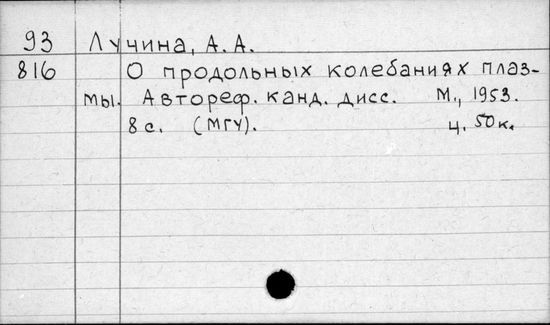 93 Лучина, А. А.
816 О продольных колебаниях плаз-
мы. Автореф. канд. дисс. М., 1953.
8 с. (МГУ). ц. 50 к.